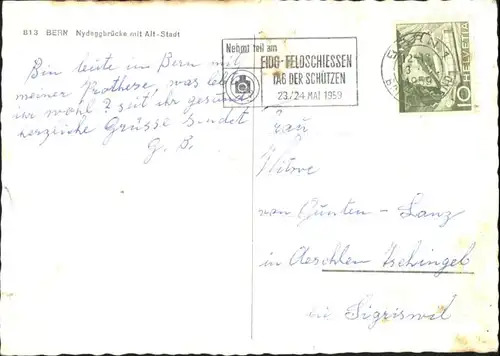 B13 BERN Nydeggbrücke mit Alt-Stadt
Bin heute in Bern mit
meiner Prothese, was lebt
ihr wohl? seit ihr gesund
herzliche Grüsse sendet
G. B.
Nehmt teil am
EIDG. FELDSCHIESSEN
TAG DER SCHÜTZEN
23./24. MAI 1959
HELVETIA
10
BERN
Frau
Witwe
von Gunten-Lanz
in Aeschlen Tschingel
bei Sigriswil